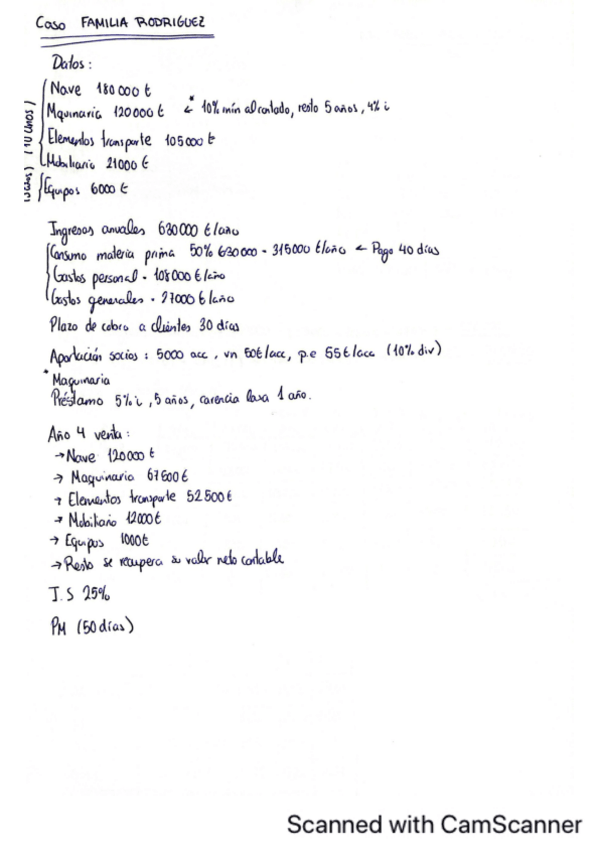 Caso FAMILIA RODRIGUEZ
Datos:
Nave 180000 €
Mquinaria 120000 € ← * 10% mín al contado, resto 5 años, 4% i
Elementos transporte 105000 €
Mobiliario 21000 €
Equipos 6000 €
Ingresos anuales 630000 €/año
Consumo materia prima 50% 630000 = 315000 €/año ← Pago 40 días
Gastos personal = 108000 €/año
Gastos generales = 27000 €/año
Plazo de cobro a clientes 30 días
Aportación socios: 5000 acc, vn 50€/acc, p.e 55€/acc (10% div)
* Maquinaria
Préstamo 5% i, 5 años, carencia 1 año.
Año 4 venta:
→ Nave 120000 €
→ Maquinaria 67500 €
→ Elementos transporte 52500 €
→ Mobiliario 12000 €
→ Equipos 1000€
→ Resto se recupera su valor neto contable
I.S 25%
PM (50 días)
Scanned with CamScanner